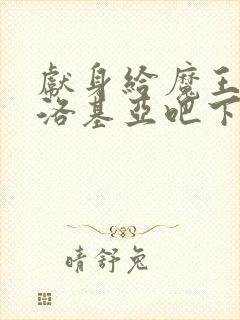 獻身給魔王
洛基亞吧下
晴舒兔